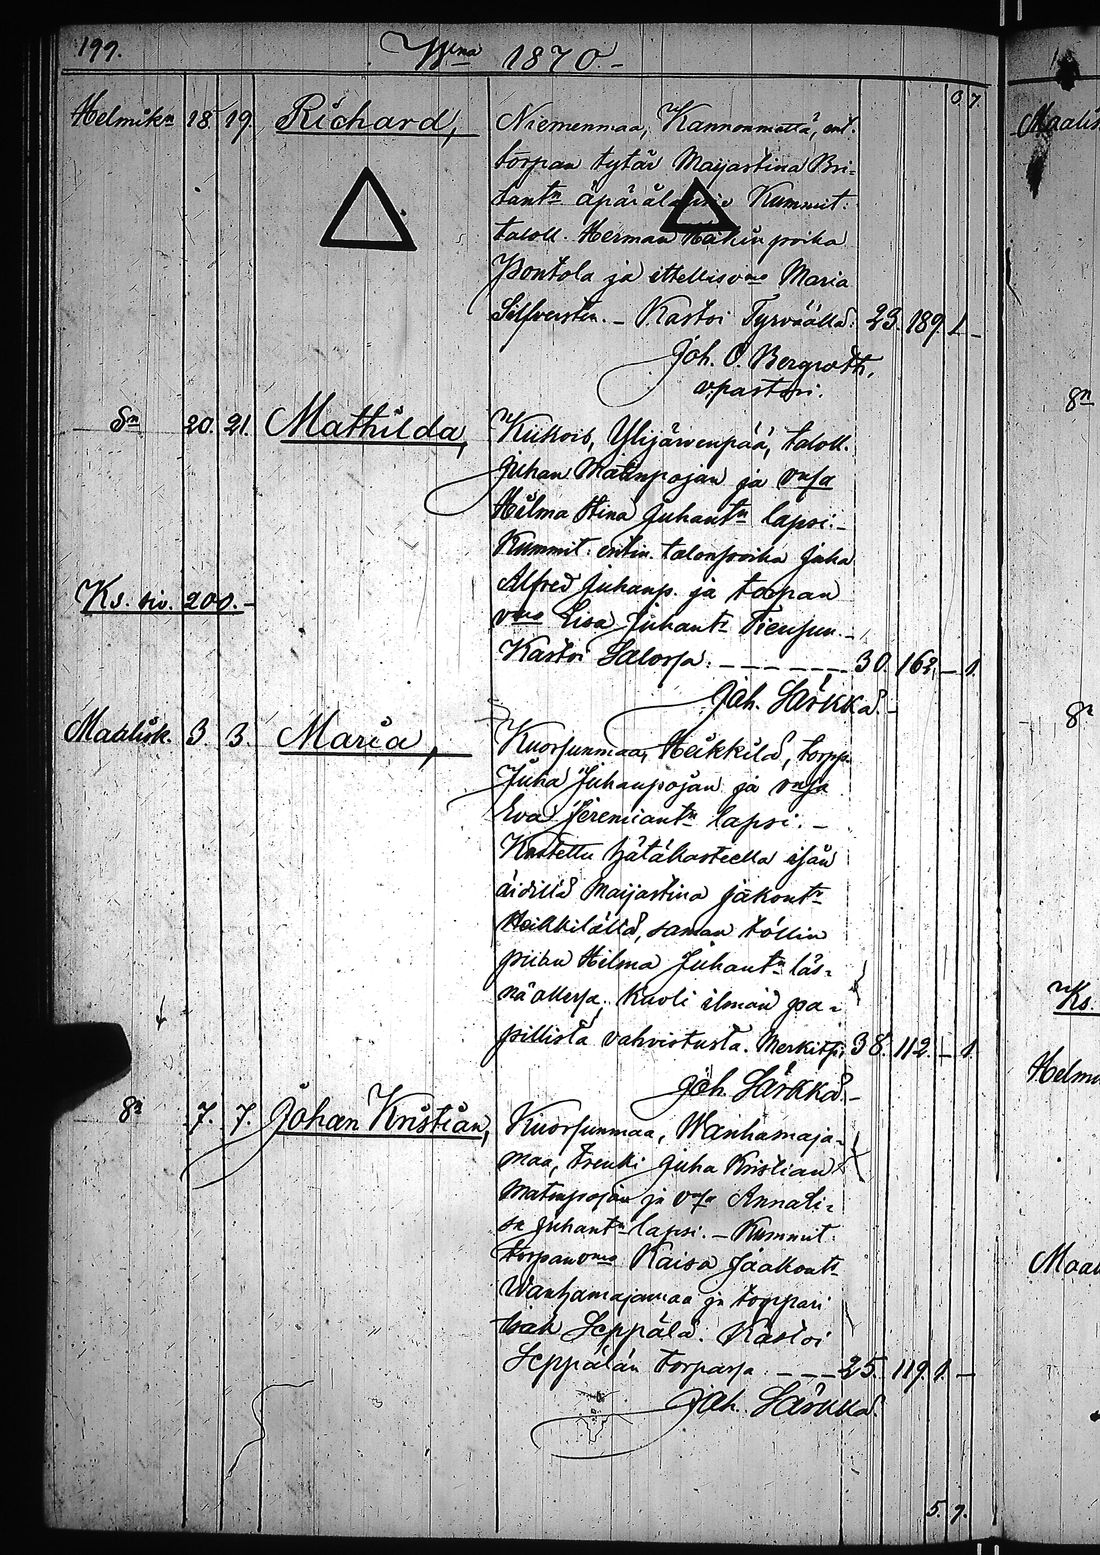 199.
Wna 1870.-
P. T.
Helmikn 18. 19. Richard,
Niemenmaa, Kannonmatta, ent.
torpan tytär Maijastina Bri-
tantn äpärälapsi Kummit:
taloll. Herman Heikinpoika
Pontola ja ittellisvmo Maria
Silfversten. - Kastoi Tyrväällä: 23. 189 1 -
Joh. O. Bergroth,
v.pastori.
Sn 20. 21. Mathilda,
Kiikois, Ylijärvenpää, taloll.
Juhan Matinpojan ja vnsa
Hilma Stina Juhantn lapsi.-
Kummit: entin. talonpoika Juha
Alfred Juhanp. ja torpan
vmo Lisa Juhantr
Ks. siv. 200.-
Kastoi Salossa: - - - - - - 30. 162. - 1.
Joh. Särkkä.-
Maalisk. 3. 3. Maria,
Kuorsunmaa, Heikkilä, torpp.
Juha Juhanpojan ja vnsa
Eva Jeremiantn lapsi. -
Kastettu hätäkasteella isän
äidiltä Maijastina Jakontr
Heikkilältä, saman töllin
piian Hilma Juhantn läs-
näollessa; kuoli ilman pa-
pillista vahvistusta. Merkitsi; 38. 112. - 1.
Joh. Särkkä.-
Sn 7. 7. Johan Kristian,
Kuorsunmaa, Wanhamaja-
maa, trenki Juha Kristian
Matinpojan ja vnsa Annali-
sa Juhantn lapsi. - Kummit:
torpanvmo Kaisa Jaakontr
Wanhamajamaa ja torppari
Isak Seppälä. Kastoi
Seppälän torpassa - - - 25. 119. 1. -
Joh. Särkkä.
5. 7.